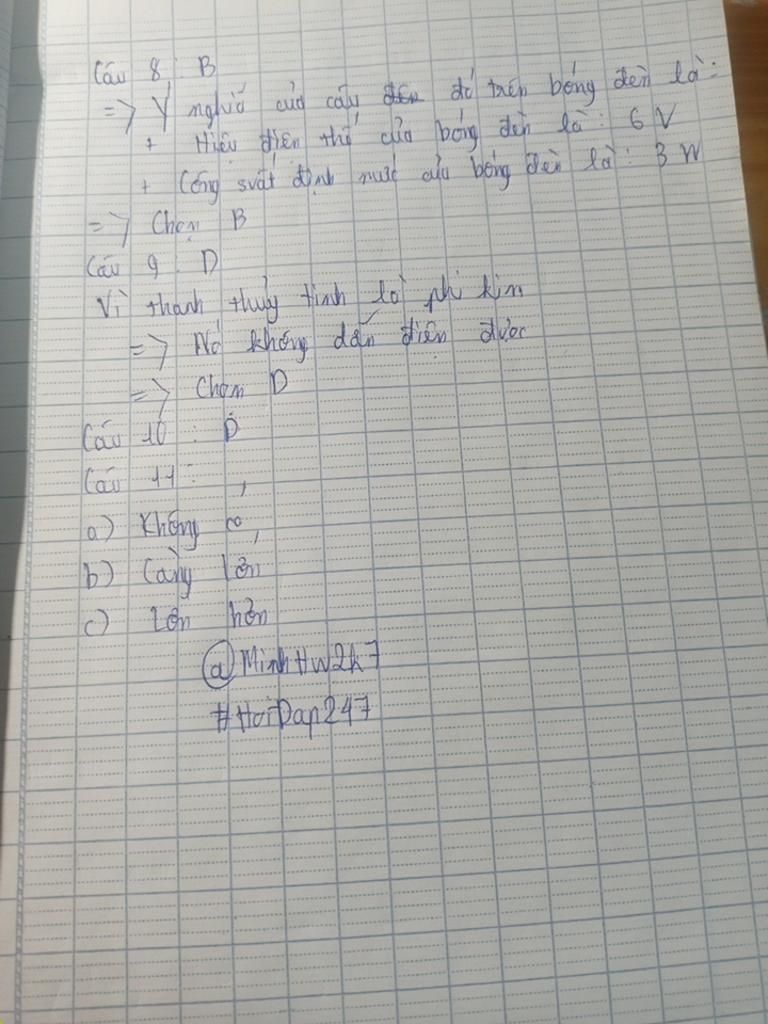 Câu 8 : B
=> Ý nghĩa của câu đó trên bóng đèn là :
+ Hiệu điện thế của bóng đèn là : 6 V
+ Công suất định mức của bóng đèn là : 3 W
=> Chọn B
Câu 9 : D
Vì thanh thủy tinh là phi kim
=> Nó không dẫn điện được
=> Chọn D
Câu 10 : D
Câu 11 :
a) Không có
b) Càng lớn
c) Lớn hơn
@MinhHw2k7
#HoiDap247